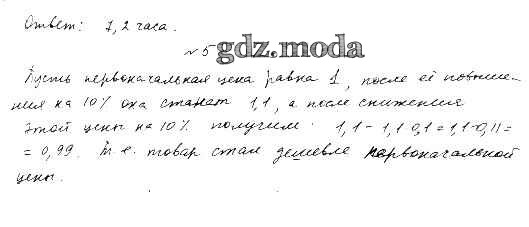 Ответ: 7,2 часа.
№5
gdz.moda
Пусть первоначальная цена равна 1, после её повыше-
ния на 10% она станет 1,1, а после снижения
этой цены на 10% получим 1,1-1,1·0,1=1,1-0,11=
=0,99. Т.е. товар стал дешевле первоначальной
цены.